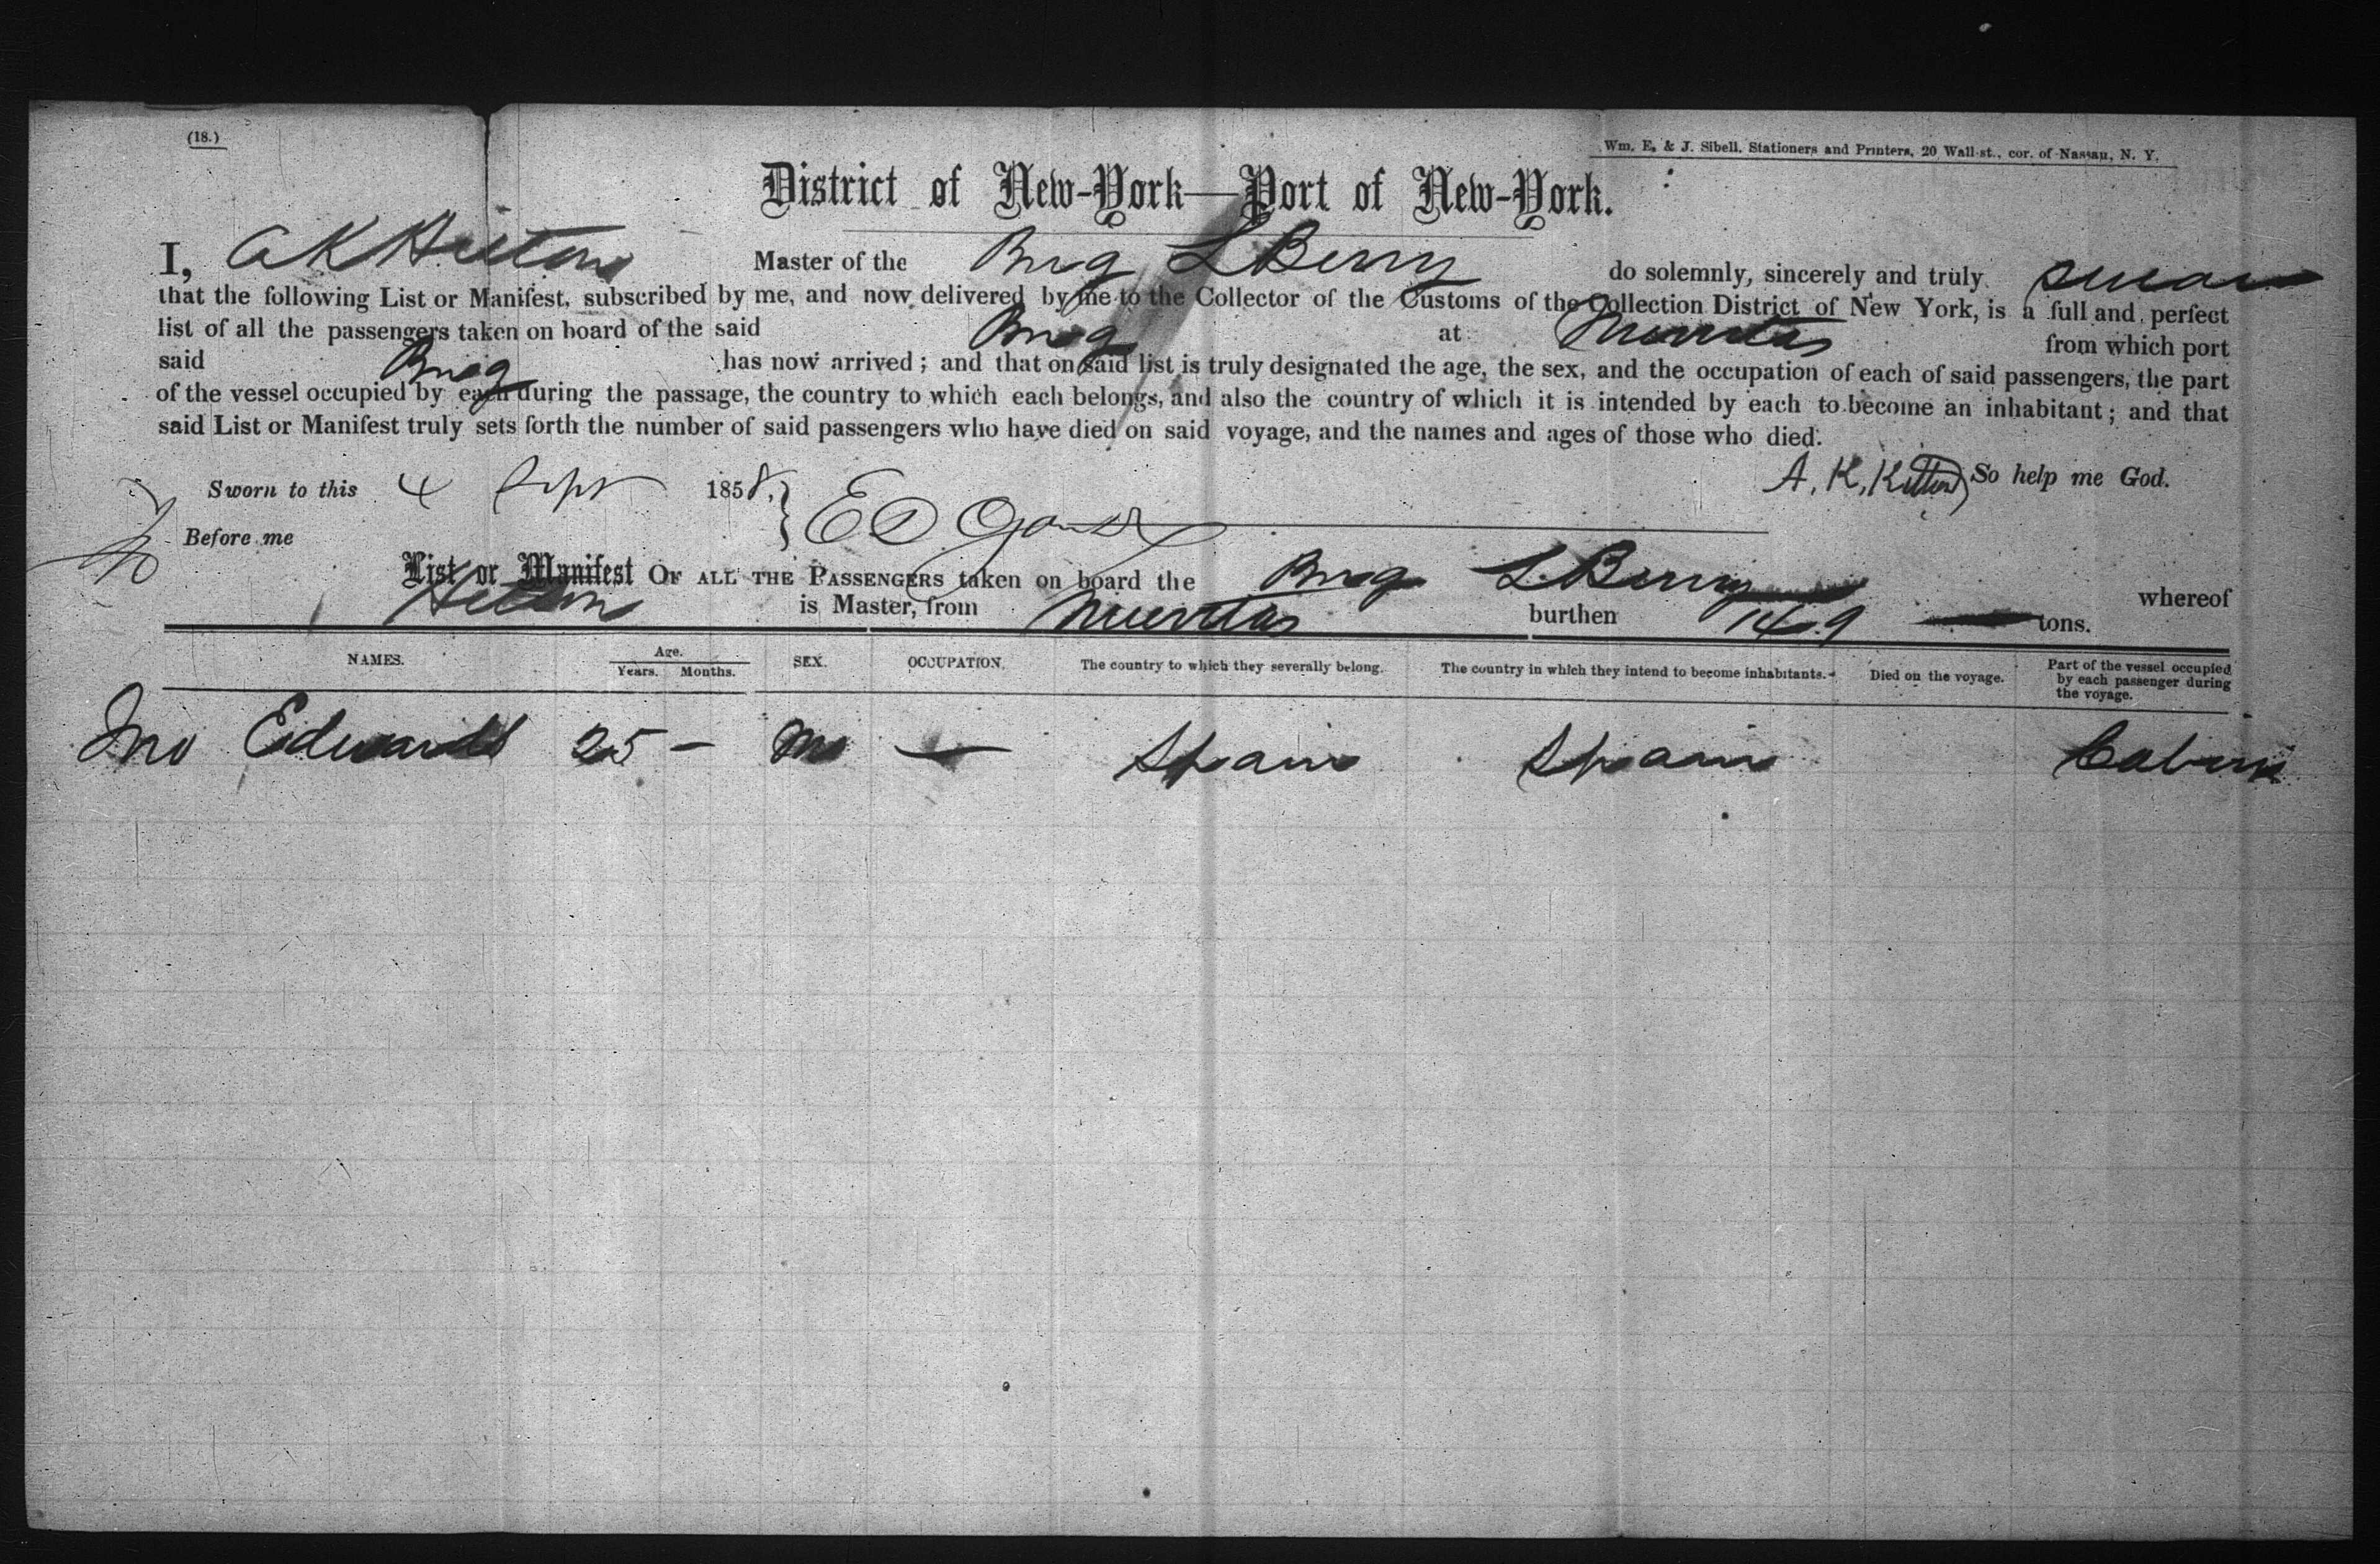 (18.)
Wm. E. & J. Sibell, Stationers and Printers, 20 Wall-st., cor. of Nassau, N. Y.
District of New-York—Port of New-York.
I, A K Master of the Brig L Berry do solemnly, sincerely and truly swear
that the following List or Manifest, subscribed by me, and now delivered by me to the Collector of the Customs of the Collection District of New York, is a full and perfect
list of all the passengers taken on board of the said Brig at Nuevitas from which port
said Brig has now arrived; and that on said list is truly designated the age, the sex, and the occupation of each of said passengers, the part
of the vessel occupied by each during the passage, the country to which each belongs, and also the country of which it is intended by each to become an inhabitant; and that
said List or Manifest truly sets forth the number of said passengers who have died on said voyage, and the names and ages of those who died.
A. K. So help me God.
Sworn to this 4 Sept 1858,
Before me E D
List or Manifest OF ALL THE PASSENGERS taken on board the Brig L. Berry whereof
is Master, from Nuevitas burthen 149 tons.
NAMES. Age. Years. Months. SEX. OCCUPATION. The country to which they severally belong. The country in which they intend to become inhabitants. Died on the voyage. Part of the vessel occupied by each passenger during the voyage.
Jno Edwards 25 – M — Spain Spain Cabin